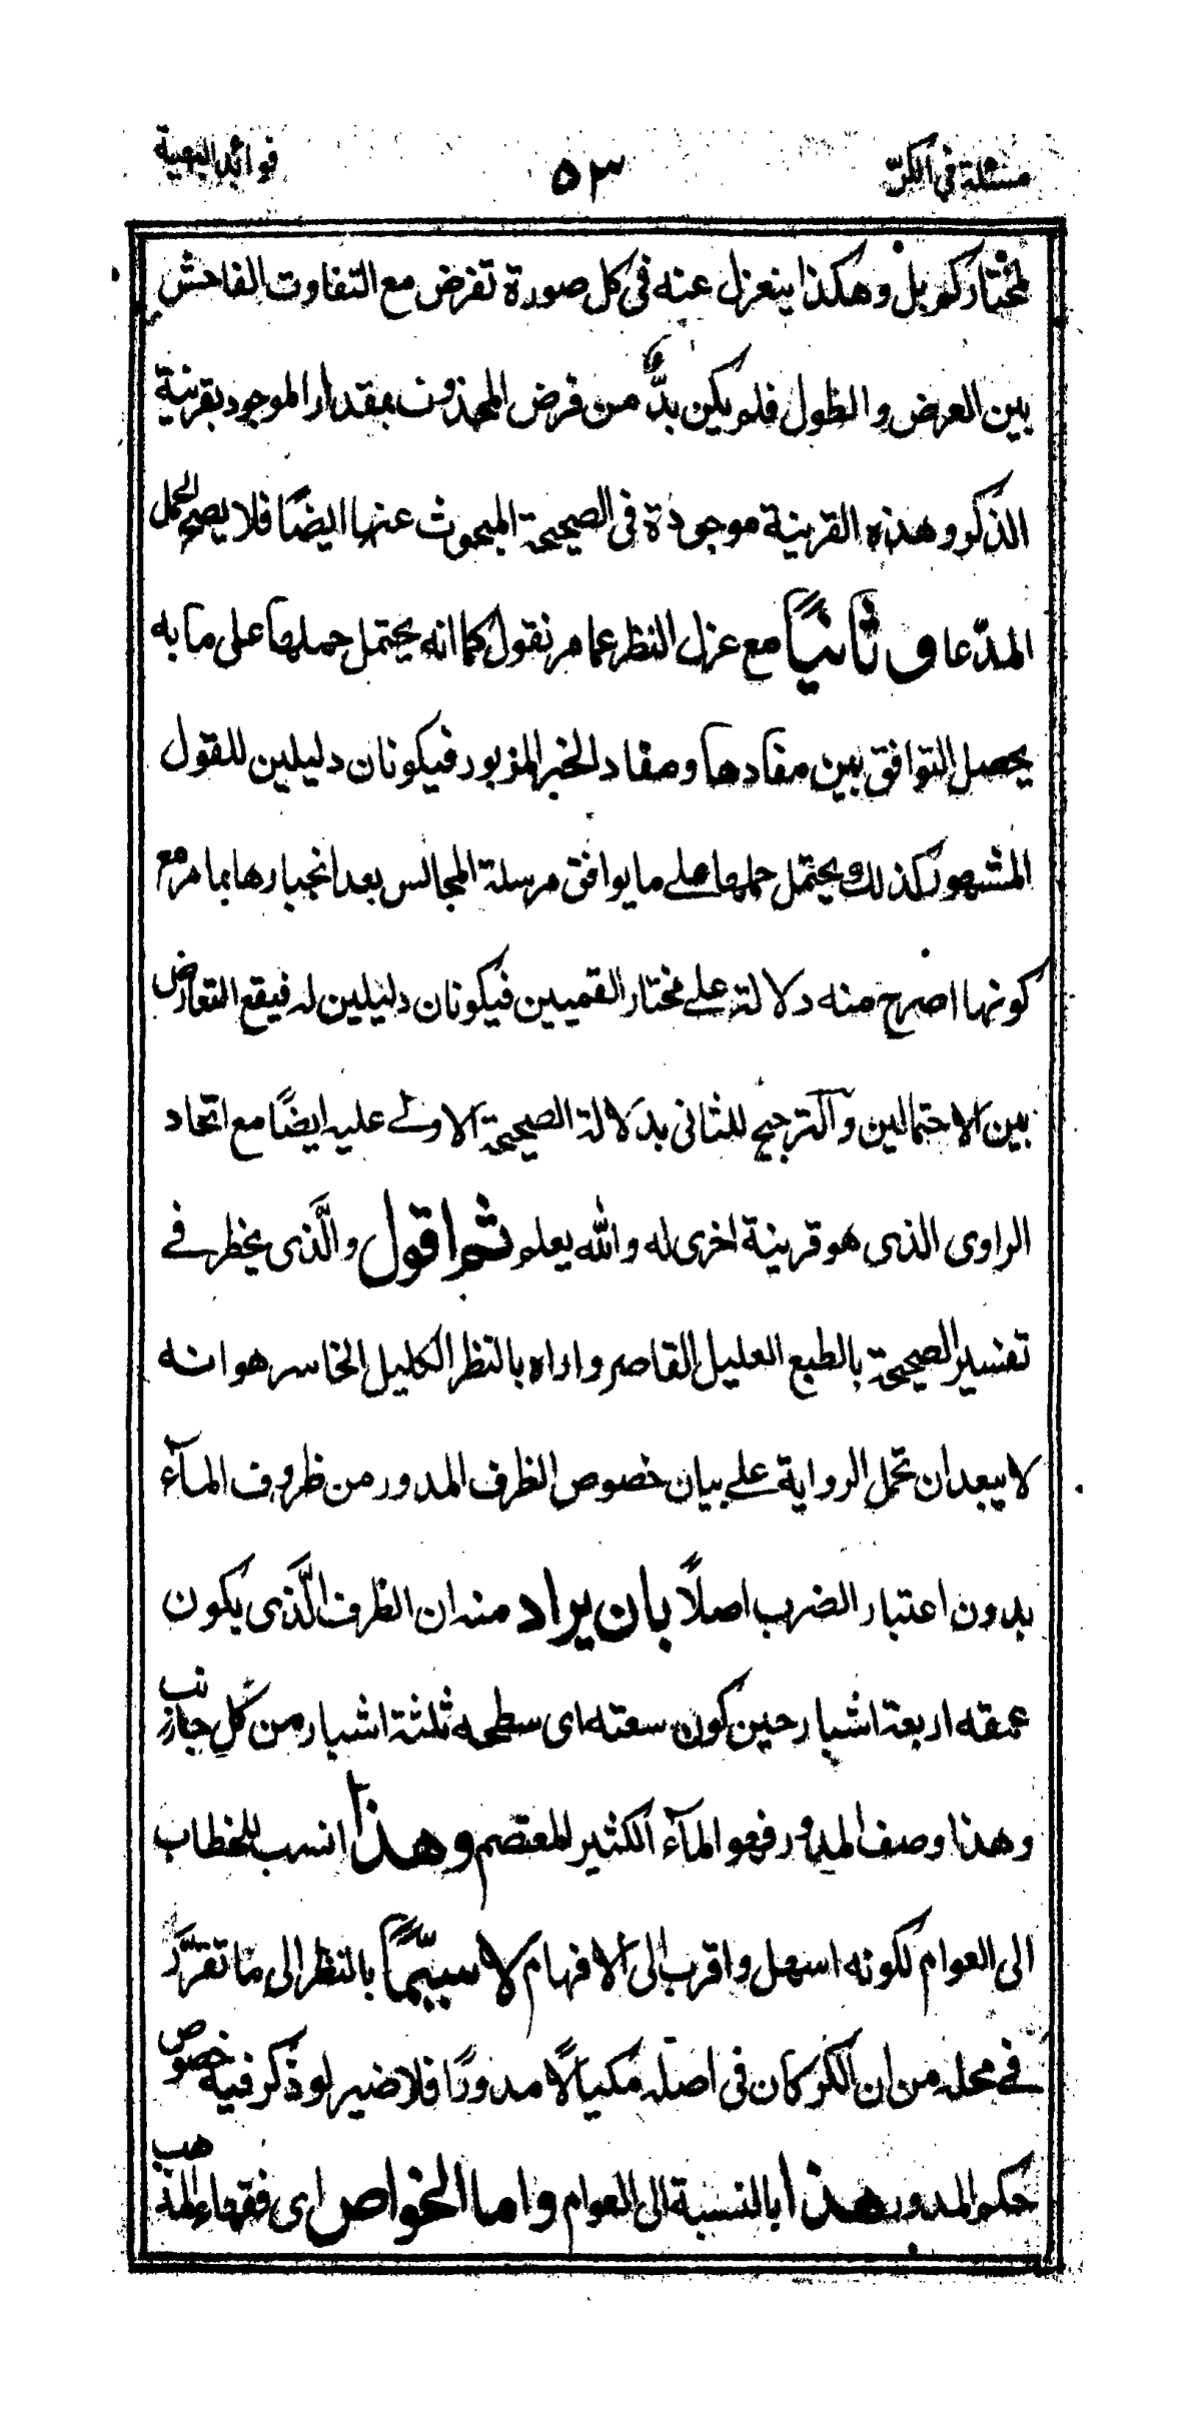 مسئلة في الكرّ
٥٣
فوائد البهية
لمختاركم بل وهكذا ينعزل عنه فى كل صورة تفرض مع التفاوت الفاحش
بين العرض والطول فلم يكن بدٌّ من فرض المحذوف بمقدار الموجود بقرينة
الذكر وهذه القرينة موجودة فى الصحيحة المبحوث عنها ايضًا فلا يصح الحمل
المدّعا و ثانيًا مع عزل النظر عما مر نقول كما انه يحتمل حملها على ما به
يحصل التوافق بين مفادها ومفاد الخبر المزبور فيكونان دليلين للقول
المشهور كذلك يحتمل حملها على ما يوافق مرسلة المجالس بعد انجبارها بما مر مع
كونها اصرح منه دلالة على مختار القميين فيكونان دليلين له فيقع التعارض
بين الاحتمالين والترجيح للثانى بدلالة الصحيحة الاولى عليه ايضًا مع اتحاد
الراوى الذى هو قرينة اخرى له والله يعلم ثم اقول والّذى يخطر فى
تفسير الصحيحة بالطبع العليل القاصر واراه بالنظر الكليل الخاسر هو انه
لا يبعد ان تحمل الرواية على بيان خصوص الظرف المدور من ظروف المآء
بدون اعتبار الضرب اصلاً بان يراد منه ان الظرف الّذى يكون
عمقه اربعة اشبار حين كون سعته اى سطحه ثلثة اشبار من كل جانب
وهذا وصف المدور فهو المآء الكثير المعتصم وهذا انسب للخطاب
الى العوام لكونه اسهل واقرب الى الافهام لا سيّمًا بالنظر الى ما تقرّر
فى محله من ان الكر كان فى اصله مكيالًا مدورًا فلا ضير لو ذكر فيه خصوص
حكم المدور هذا بالنسبة الى العوام واما الخواص اى فقهاء المذهب